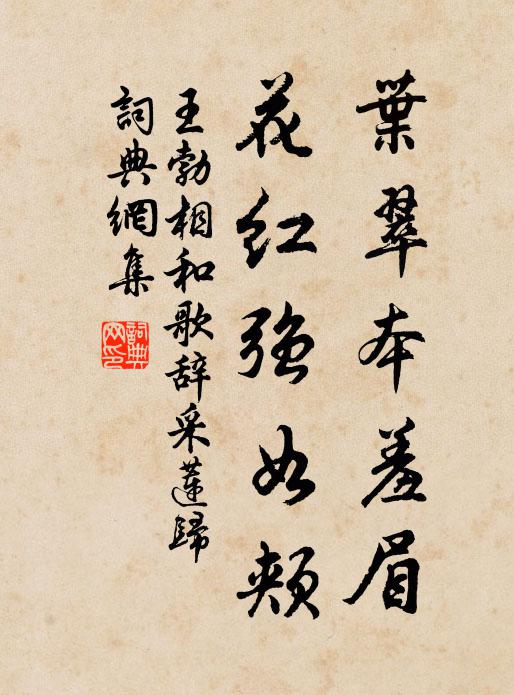 葉翠本羞眉
花红强如頰
王勃相和歌辞采蓮歸
詞典網集
詞典网印